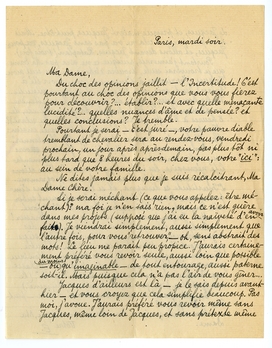 Paris, mardi soir.
Ma Dame,
Du choc des opinions jaillit – l'Incertitude! C'est
pourtant au choc des opinions que vous vous fierez
pour découvrir?... établir?... et avec quelle menaçante
lucidité?... quelles nuances d'âme et de pensée? et
quelles conclusions? Je tremble.
Pourtant je serai – c'est juré –, votre pauvre diable
tremblant de chevalier sera au rendez-vous, vendredi
prochain, un jour après après-demain, pas plus tôt ni
plus tard que 8 heures du soir, chez vous, votre "ici":
au sein de votre famille.
Ne dites jamais plus que je suis récalcitrant, Ma
Dame Chère!
Si je serai méchant (ce que vous appelez: être mé-
chant)? ma foi je n'en sais rien, mais ce n'est guère
dans mes projets (supposé que j'ai eu la naïveté d'
faits), je viendrai simplement, aussi simplement que
l'autre fois, pour vous retrouver – oh, sens abstrait des
mots! Le lieu me paraît peu propice. J'aurais certaine-
ment préféré vous revoir seule, aussi loin que possible
– ou qu'imaginable – de tout entourage, aussi paterne
soit-il. Mais puisque cela n'a pas l'air de vous gêner.
Jacques d'ailleurs est là – je le sais depuis avant-
hier – et vous croyez que cela simplifie beaucoup. Pas
moi, j'avoue. J'aurais préféré vous revoir même sans
Jacques, même loin de Jacques, et sans prétexte même